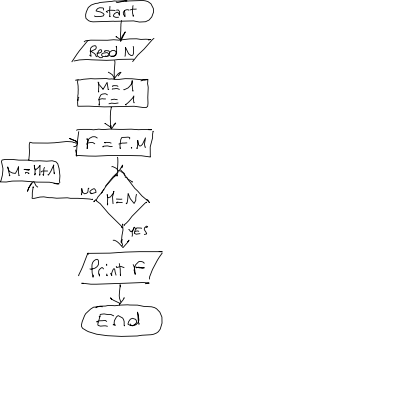 Start
Read N
M = 1
F = 1
F = F.M
M = M+1
NO
M=N
YES
Print F
End